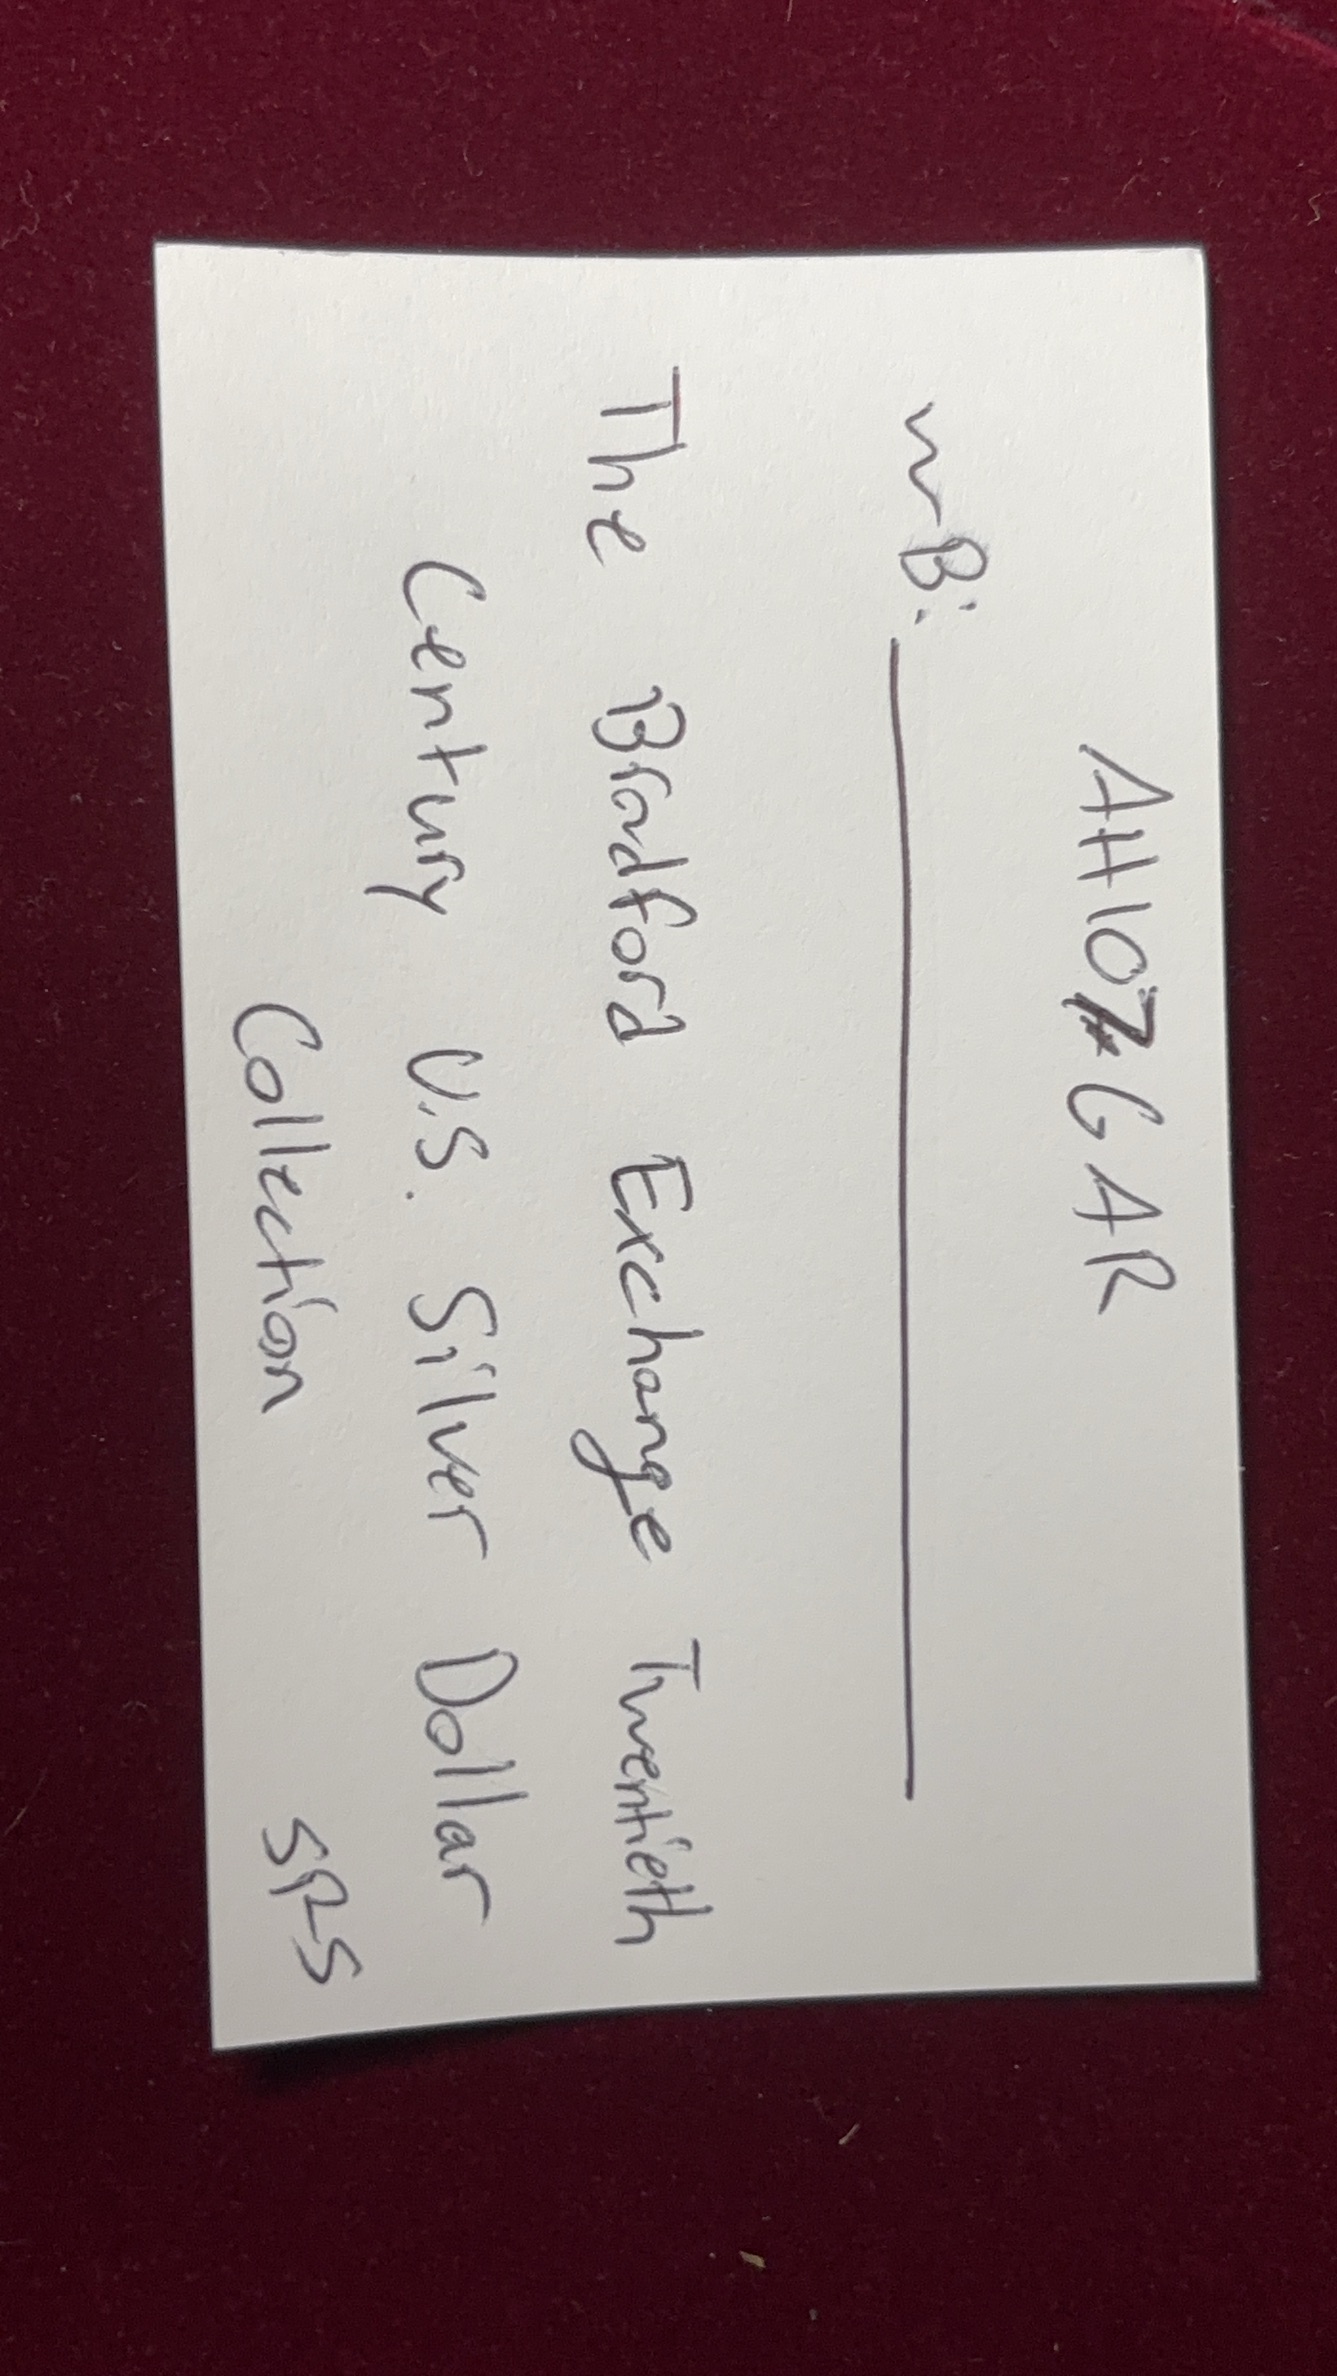 AH107GAR
WB:
The Bradford Exchange Twentieth
Century U.S. Silver Dollar
Collection
SRS